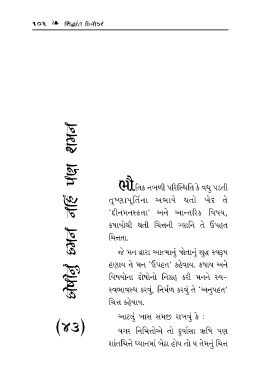 ૧૦૬ ❧ સિદ્ધાંત દિવાકર
દોષોનું દમન નહિં પણ શમન
(૪૩)
ભૌતિક નબળી પરિસ્થિતિ કે વધુ પડતી
તૃષ્ણાપૂર્તિના અભાવે થતો ખેદ તે
'દીનમનસ્કતા' અને આન્તરિક વિષય,
કષાયોથી થતી ચિત્તની ગ્લાનિ તે ઉપહત
ચિત્તતા.
જે મન દ્વારા આત્માનું પોતાનું શુદ્ધ સ્વરૂપ
હણાય તે મન 'ઉપહત' કહેવાય. કષાય અને
વિષયોના દોષોનો નિગ્રહ કરી મનને સ્વ-
સ્વભાવસ્થ કરવું, નિર્મળ કરવું તે 'અનુપહત'
ચિત્ત કહેવાય.
આટલું ખાસ સમજી રાખવું કે :
વગર નિમિત્તોએ તો દુર્વાસા ઋષિ પણ
શાંતચિત્તે ધ્યાનમાં બેઠા હોય તો ય તેમનું ચિત્ત